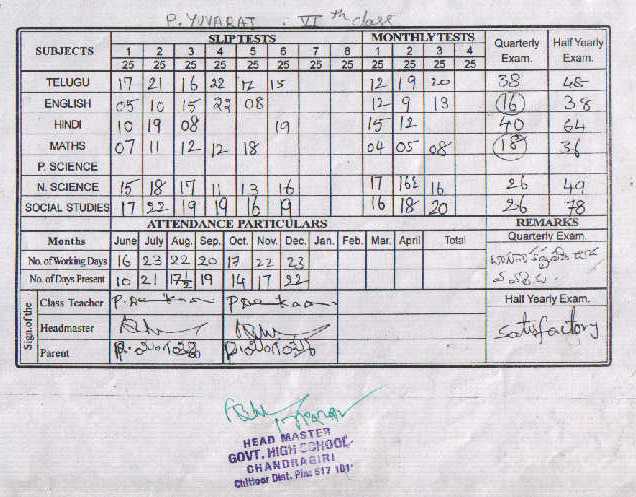 P. YUVARAJ. VI th class
SUBJECTS SLIP TESTS MONTHLY TESTS Quarterly Exam. Half Yearly Exam.
1 2 3 4 5 6 7 8 1 2 3 4
25 25 25 25 25 25 25 25 25 25 25 25
TELUGU 17 21 16 22 12 15 12 19 20 38 48
ENGLISH 05 10 15 22 08 12 9 13 16 38
HINDI 10 19 08 19 15 12 40 64
MATHS 07 11 12 12 18 04 05 08 18 36
P. SCIENCE
N. SCIENCE 15 18 17 11 13 16 17 16½ 16 26 49
SOCIAL STUDIES 17 22 19 19 16 19 16 18 20 26 78
ATTENDANCE PARTICULARS REMARKS
Months June July Aug. Sep. Oct. Nov. Dec. Jan. Feb. Mar. April Total Quarterly Exam.
No. of Working Days 16 23 22 20 17 22 23
No. of Days Present 10 21 17½ 19 14 17 22
Sign of the
Class Teacher Half Yearly Exam.
Headmaster Satisfactory
Parent
HEAD MASTER
GOVT. HIGH SCHOOL
CHANDRAGIRI
Chittoor Dist. Pin: 517 101